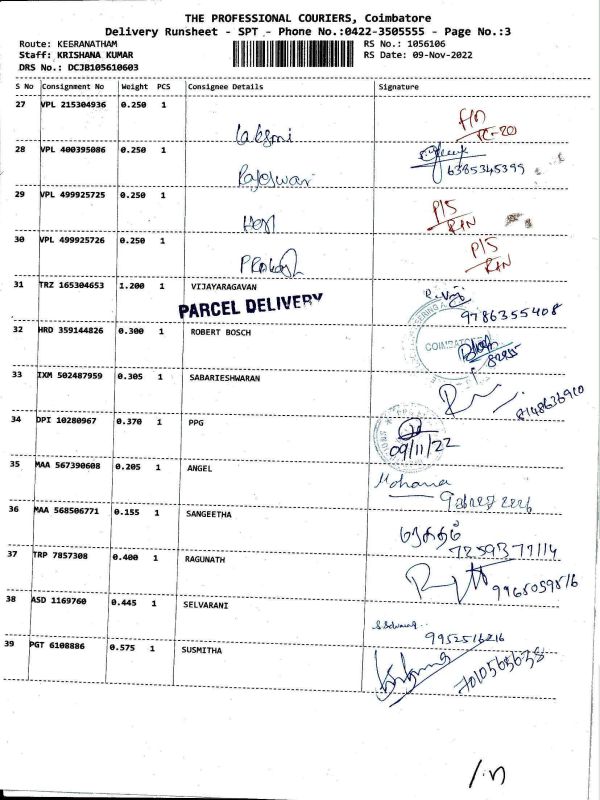 THE PROFESSIONAL COURIERS, Coimbatore
Delivery Runsheet - SPT - Phone No.:0422-3505555 - Page No.:3
Route: KEERANATHAM RS No.: 1056106
Staff: KRISHANA KUMAR RS Date: 09-Nov-2022
DRS No.: DCJB105610603
S No Consignment No Weight PCS Consignee Details Signature
27 VPL 215304936 0.250 1
Laksmi
28 VPL 400395086 0.250 1
Rajeswari 6385345399
29 VPL 499925725 0.250 1 P/S
Hari
30 VPL 499925726 0.250 1 P/S
Prakash
31 TRZ 165304653 1.200 1 VIJAYARAGAVAN
PARCEL DELIVERY 9786355408
32 HRD 359144826 0.300 1 ROBERT BOSCH
33 IXM 502487959 0.305 1 SABARIESHWARAN
8148636910
34 DPI 10280967 0.370 1 PPG
09/11/22
35 MAA 567390608 0.205 1 ANGEL Mohana
36 MAA 568506771 0.155 1 SANGEETHA
7259377114
37 TRP 7857308 0.400 1 RAGUNATH
9965059816
38 ASD 1169760 0.445 1 SELVARANI
9952516216
39 PGT 6108886 0.575 1 SUSMITHA
7010565638